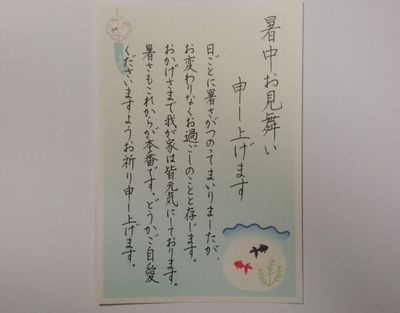 暑中お見舞い
申し上げます
日ごとに暑さがつのってまいりましたが、
お変わりなくお過ごしのことと存じます。
おかげさまで我が家は皆元気にしております。
暑さもこれからが本番です。どうかご自愛
くださいますようお祈り申し上げます。